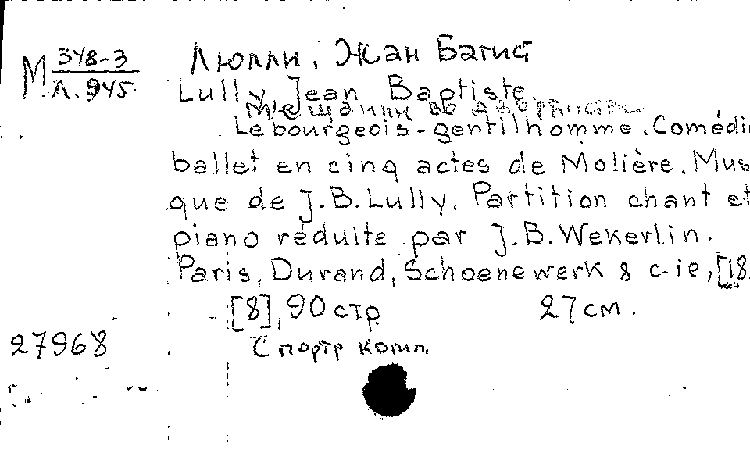 М 348-3
Л. 945
Люлли, Жан Батист
Lully Jean Baptiste
Мещанин во дворянстве
Le bourgeois-gentilhomme. Comédi
ballet en cinq actes de Molière. Mus
que de J.B. Lully. Partition chant et
piano réduite par J.B. Wekerlin.
Paris, Durand, Schoenewerk & c-ie, [18
[8], 90 стр 27 см.
27968
С портр комп.